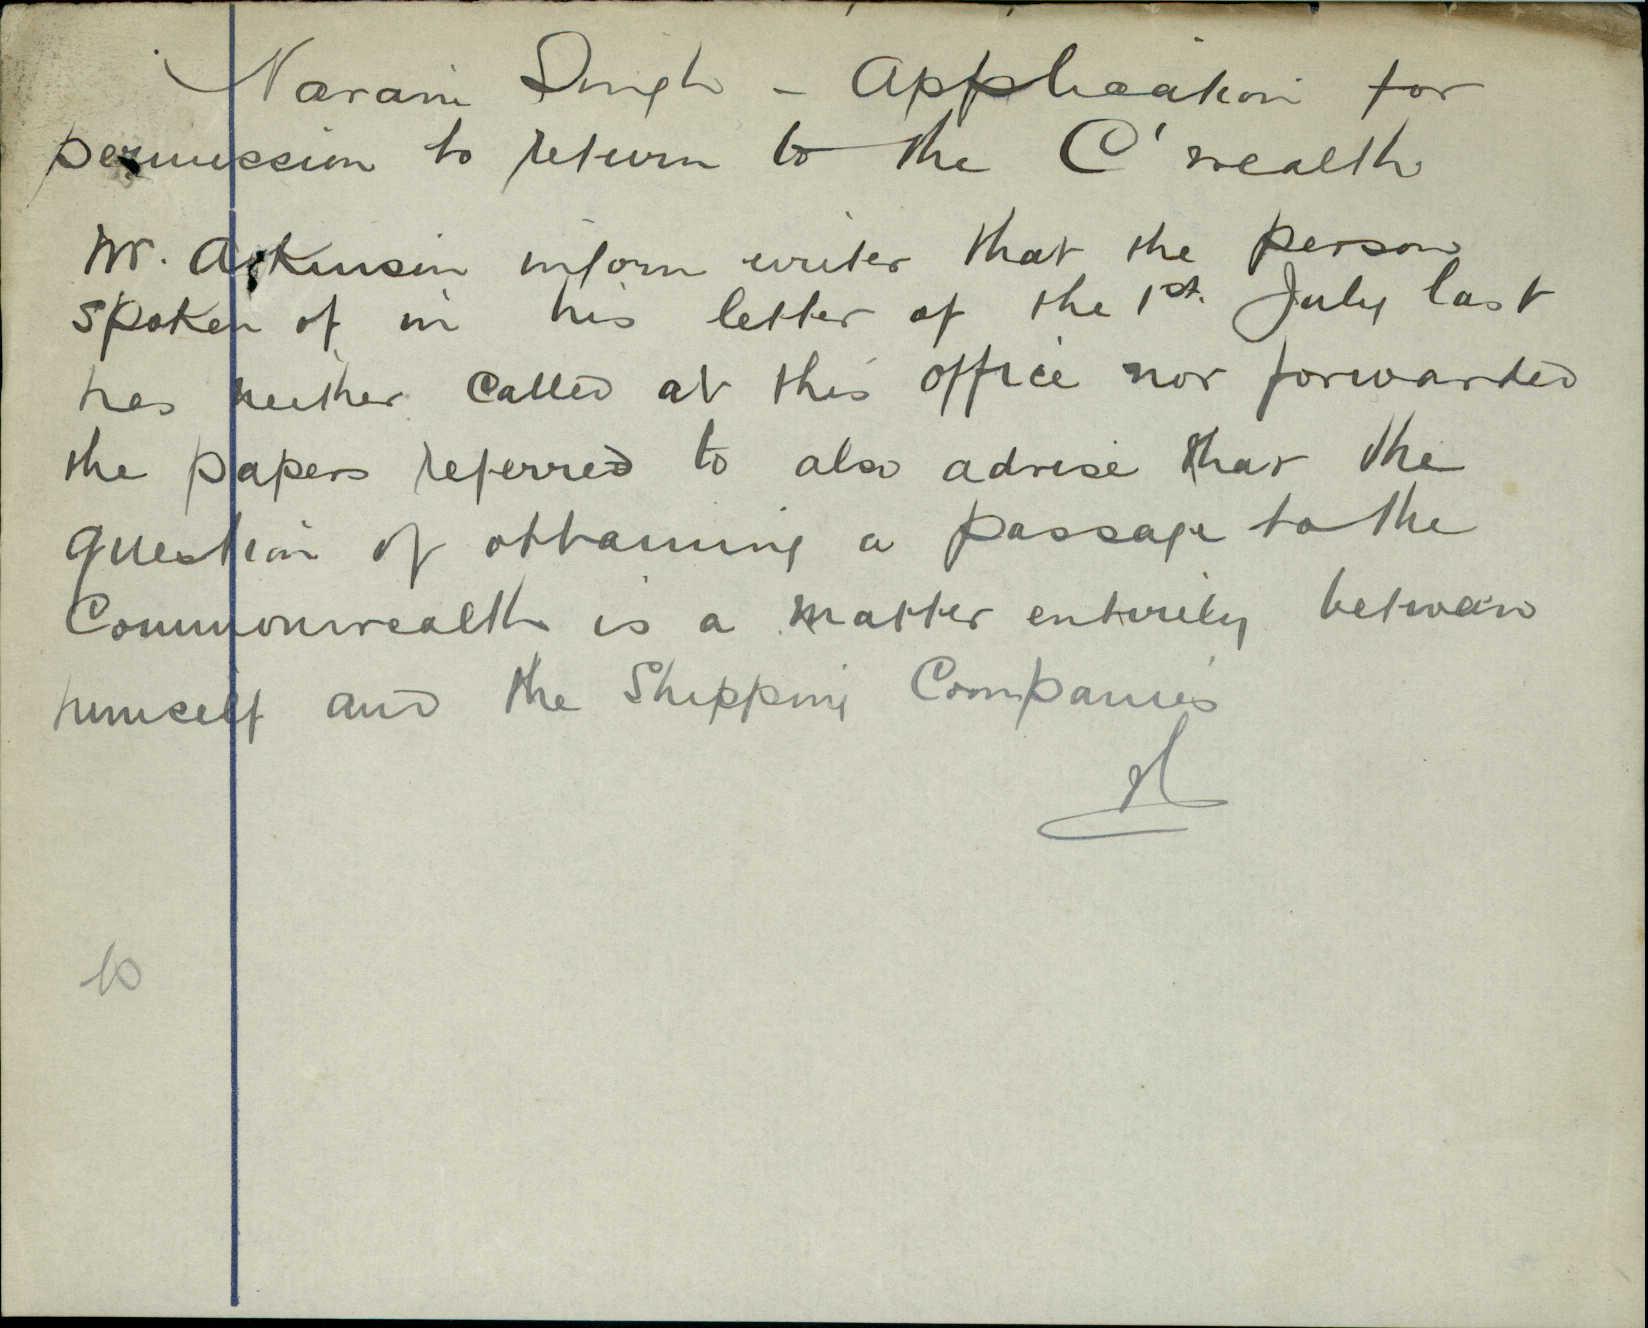 Narain Singh - Application for
permission to return to the C'wealth
Mr. Atkinson inform writer that the person
spoken of in his letter of the 1st. July last
has neither called at this office nor forwarded
the papers referred to also advise that the
question of obtaining a passage to the
Commonwealth is a matter entirely between
himself and the Shipping Companies